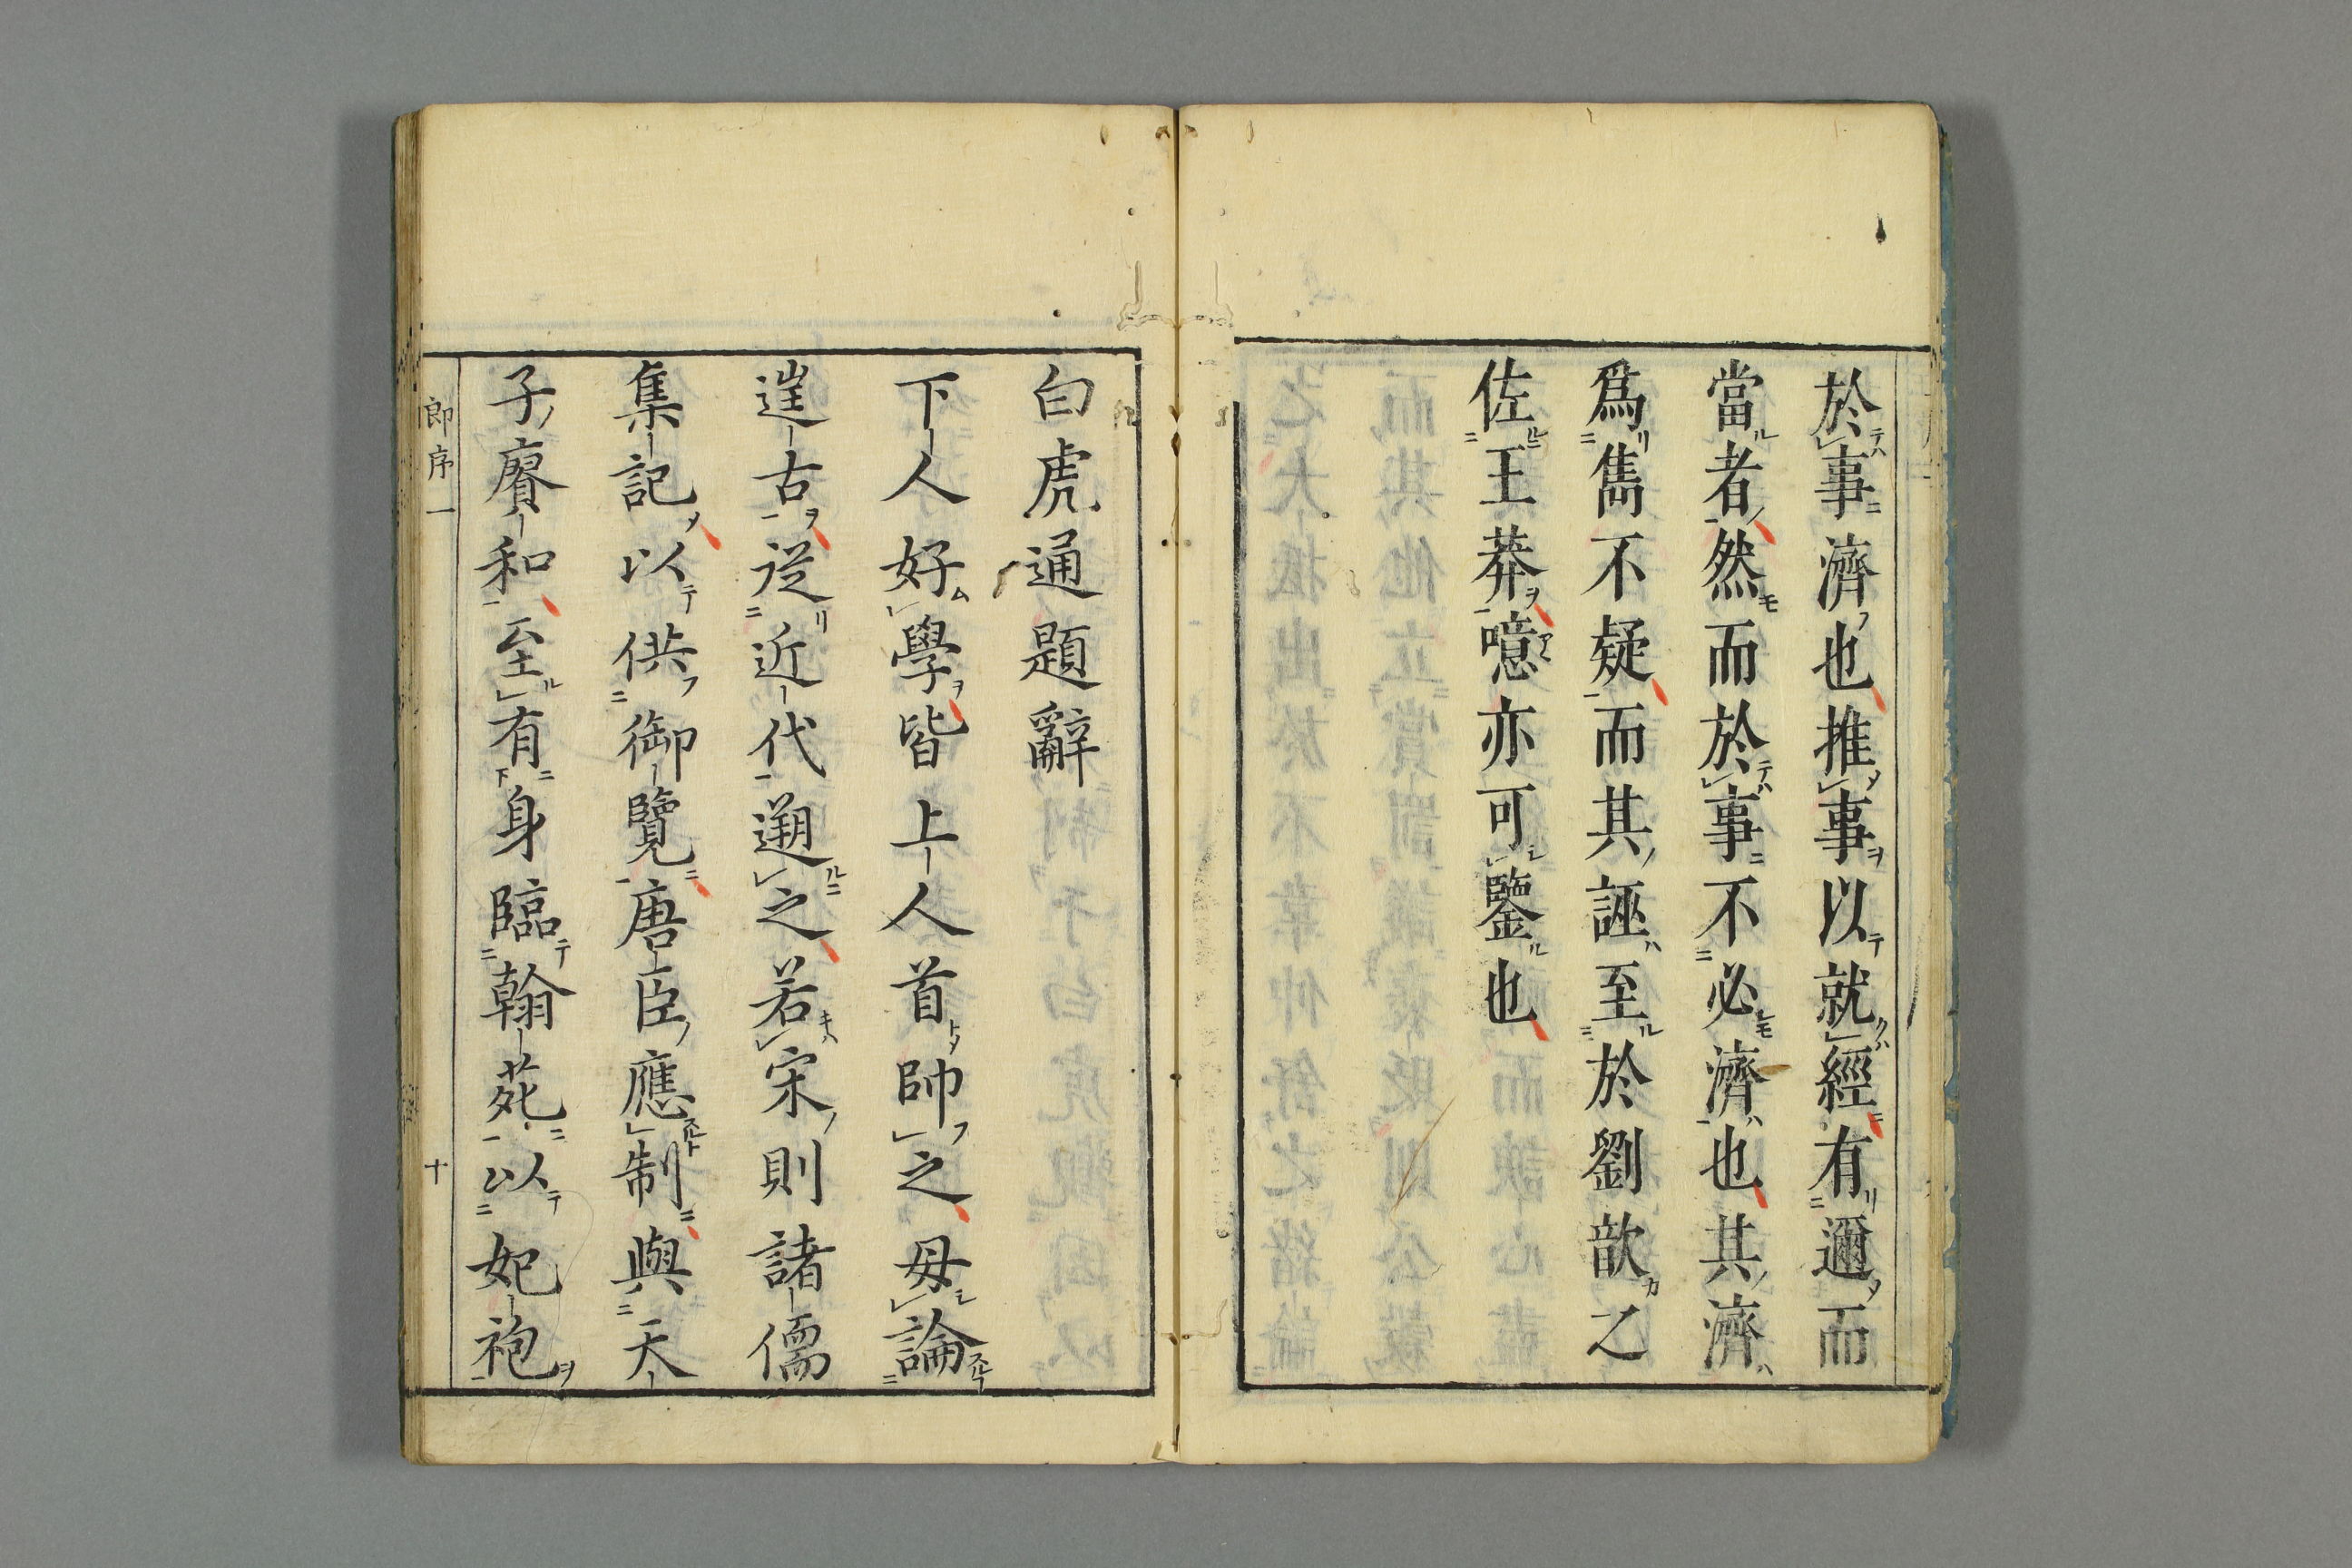 於事濟也推事以就經有邇而
當者然而於事不必濟也其濟
爲雋不疑而其誣至於劉歆之
佐王莽噫亦可鑒也
白虎通題辭
下人好學皆上人首帥之毋論
邃古從近代遡之若宋則諸儒
集記以供御覽唐臣應制與天
子賡和至有身臨翰苑以妃袍
郎序一
十